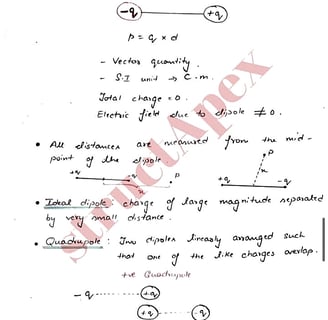 -q +q
p = q × d
- Vector quantity.
- S.I unit → C.m.
Total charge = 0.
Electric field due to dipole ≠ 0.
• All distances are measured from the mid-
point of the dipole.
+q -q P +q -q P
x x
• Ideal dipole: charge of large magnitude separated
by very small distance.
• Quadrupole: Two dipoles linearly arranged such
that one of the like charges overlap.
+ve Quadrupole
-q +q
+q -q
StructApex